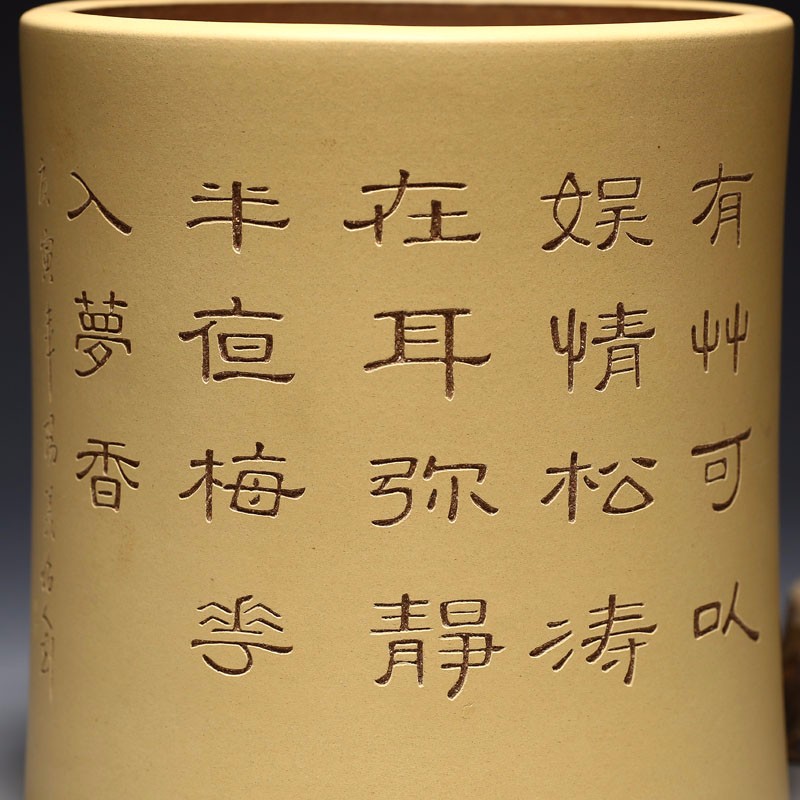 有艸可以
娱情松涛
在耳弥静
半亱梅華
入夢香